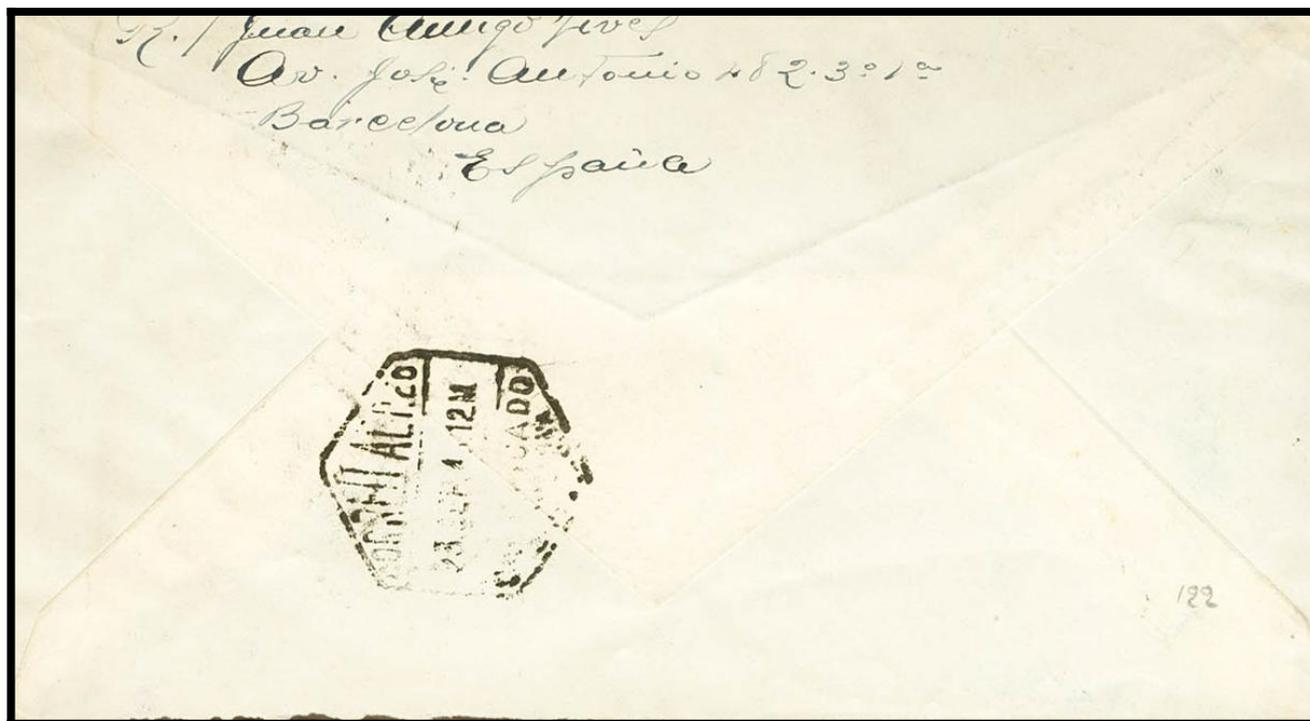 R./ Juan Amigó Vives
Av. José Antonio 482·3º1ª
Barcelona
España
CORREO AEREO
12M
23
122